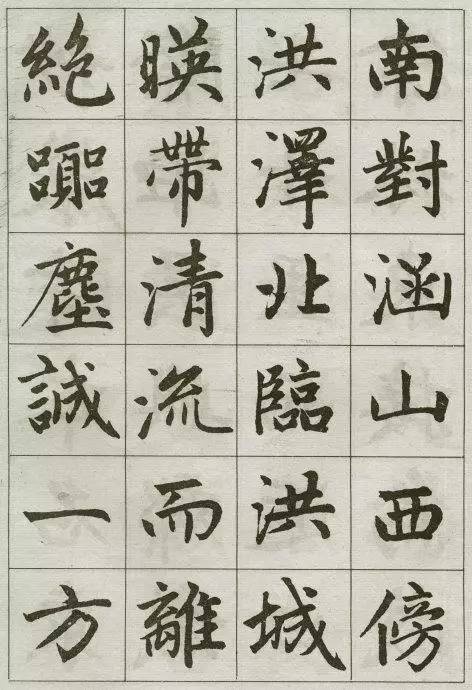 南對涵山西傍
洪澤北臨洪城
暎帶清流而離
絶塵誠一方